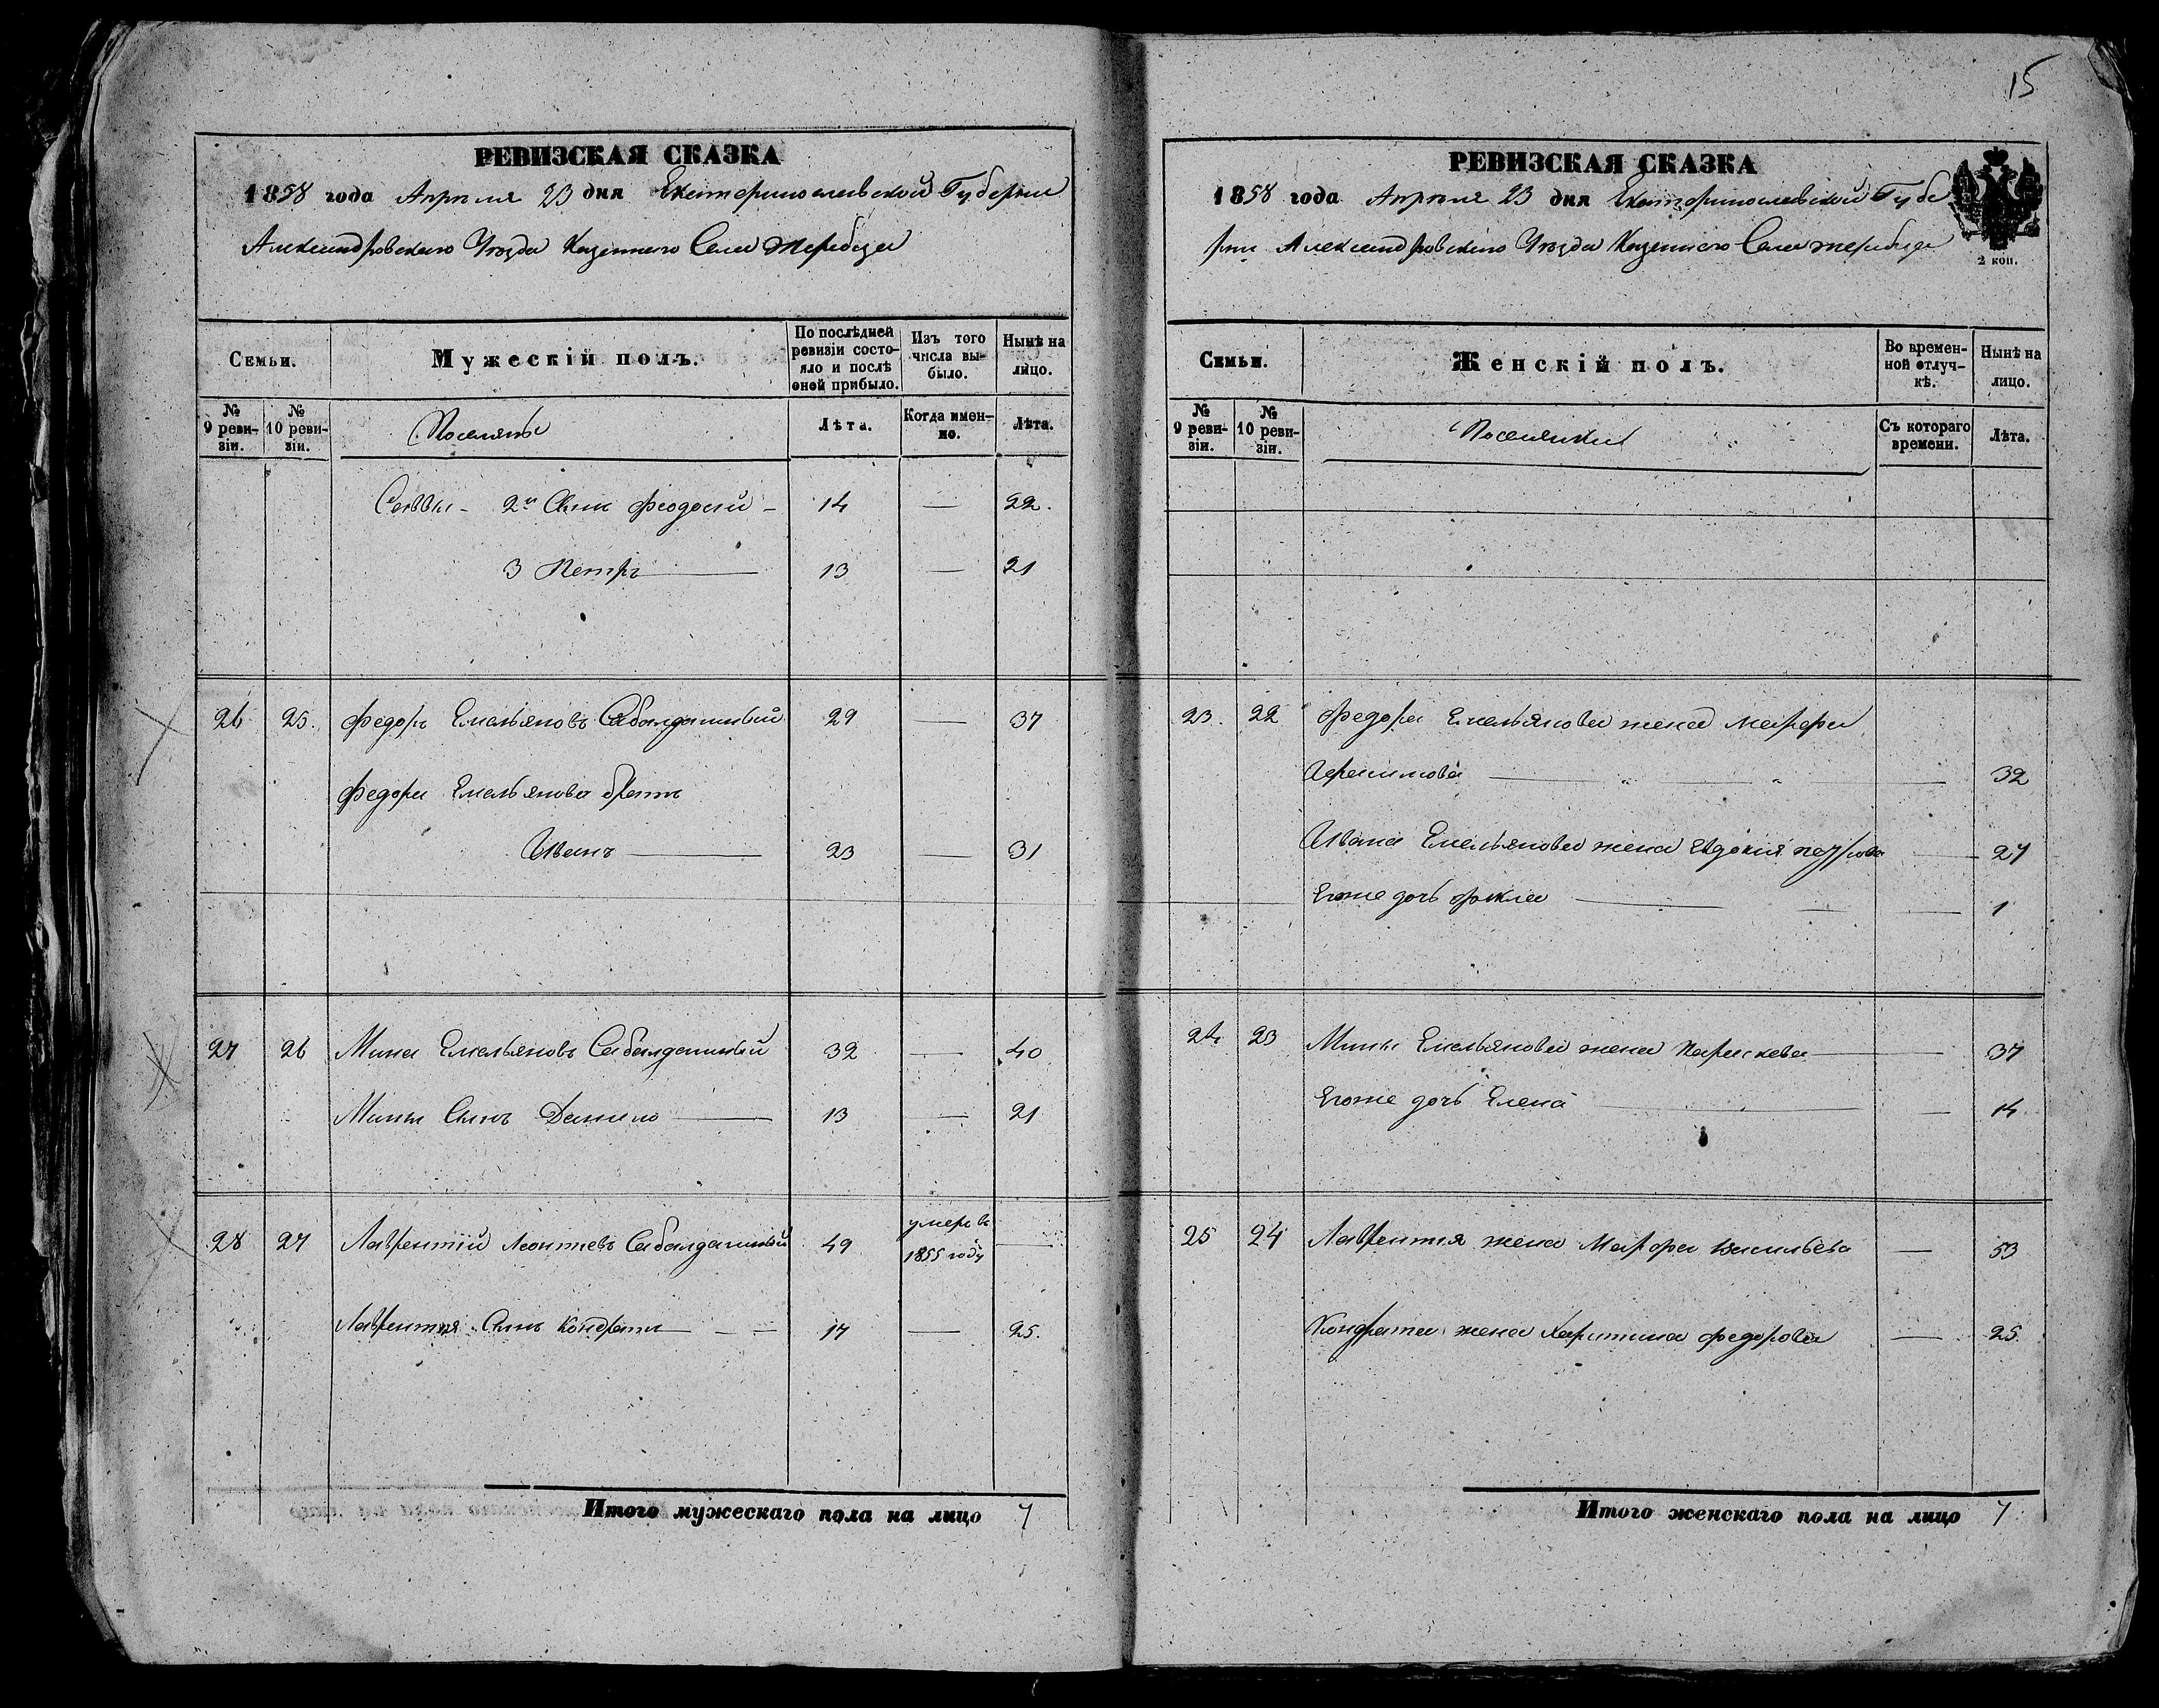 15
РЕВИЗСКАЯ СКАЗКА
1858 года Апреля 23 дня Екатеринославской Губернии
Александровскаго Уезда Казеннаго Села Жеребца
Семьи.
Мужескій полъ.
По послѣдней ревизіи состояло и послѣ оной прибыло.
Изъ того числа выбыло.
Нынѣ на лицо.
№ 9 ревизіи.
№ 10 ревизіи.
Поселяне
Лѣта.
Когда именно.
Лѣта.
Саввы - 2й Сынъ Феодосий - 14 — 22.
3 Петръ — 13 — 21
26 25. Федоръ Емельяновъ Сабалдашный 29 — 37
Федора Емельянова братъ
Иванъ — 23 — 31
27 26 Мина Емельяновъ Сабалдашный 32 — 40
Мины Сынъ Данило — 13 — 21
28 27 Лаврентий Леонтьевъ Сабалдашный 49 умеръ въ 1855 году —
Лаврентия Сынъ Кондратъ — 17 — 25.
Итого мужескаго пола на лицо 7
РЕВИЗСКАЯ СКАЗКА
1858 года Апреля 23 дня Екатеринославской Губе
рнии Александровскаго Уезда Казеннаго Села Жеребца
2 коп.
Семьи.
Женскій полъ.
Во временной отлучкѣ.
Нынѣ на лицо.
№ 9 ревизіи.
№ 10 ревизіи.
Поселянки
Съ котораго времени.
Лѣта.
23. 22 Федора Емельянова жена Марфа
Герасимова — 32
Ивана Емельянова жена Евдокия Петрова — 27
Егоже дочь Фекла — 1
24 23 Мины Емельянова жена Параскева — 37
Егоже дочь Елена — 14
25 24 Лаврентия жена Марфа Васильева — 53
Кондрата жена Харитина Федорова — 25.
Итого женскаго пола на лицо 7